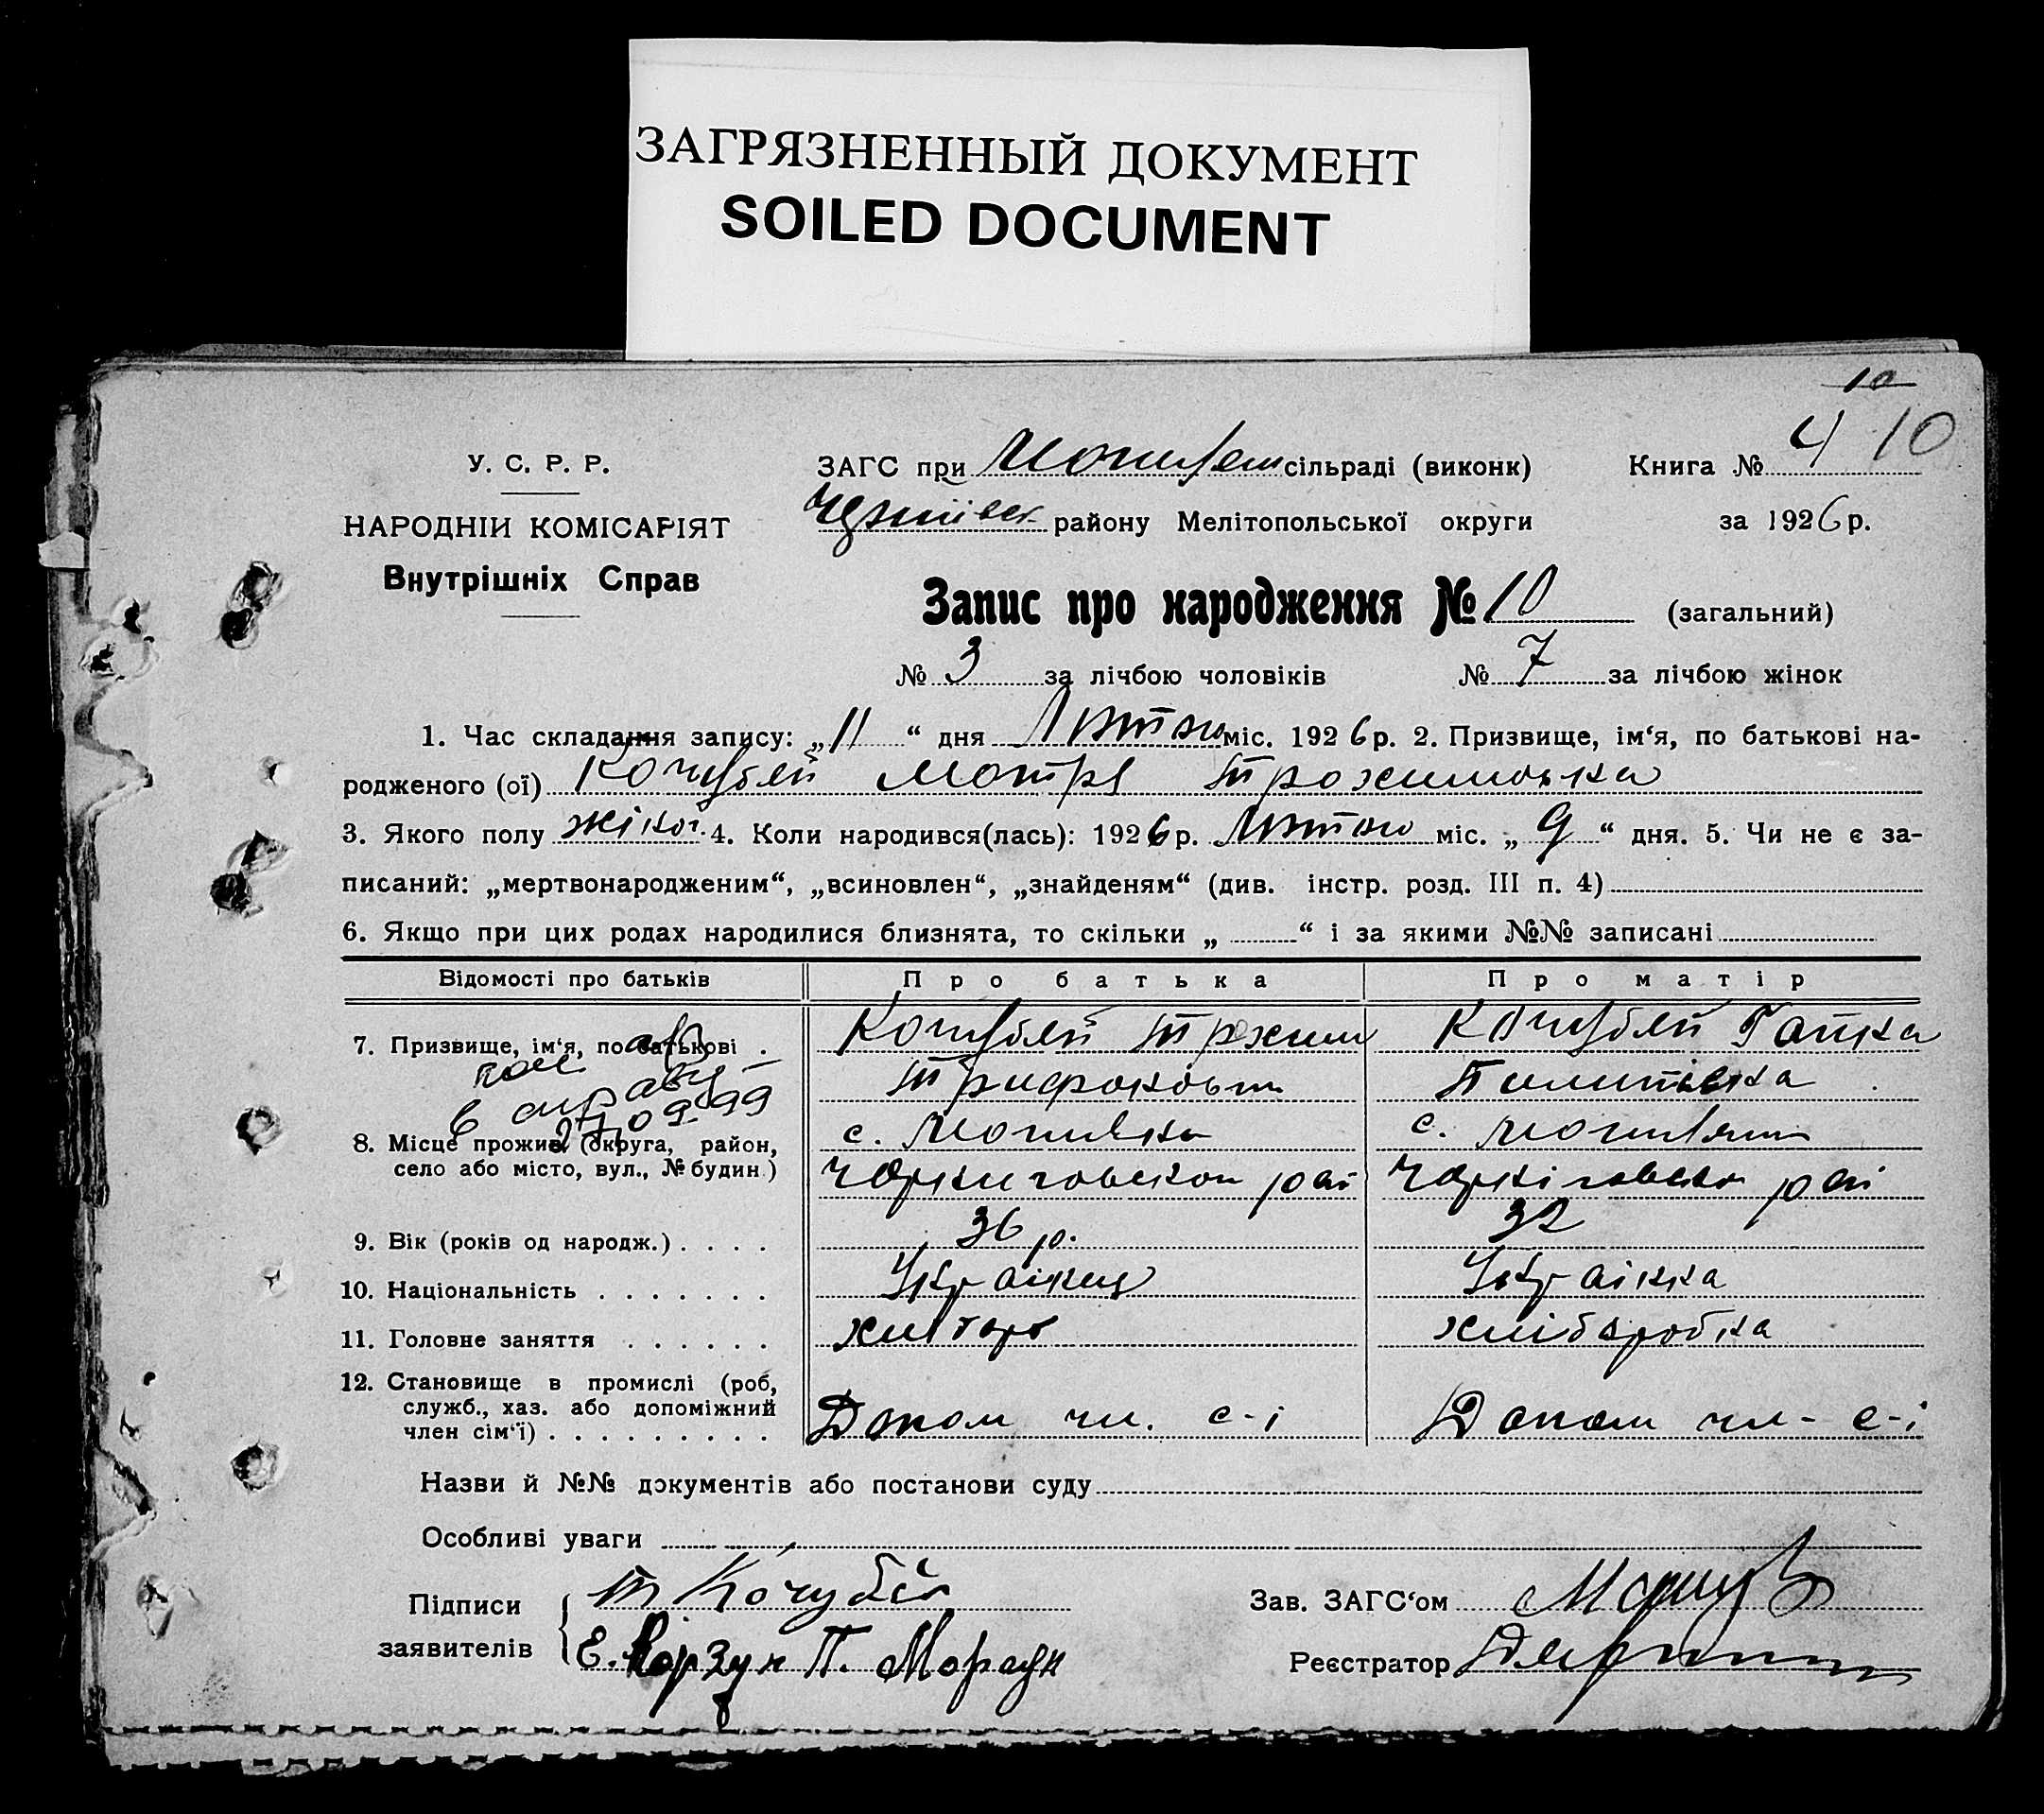 ЗАГРЯЗНЕННЫЙ ДОКУМЕНТ
SOILED DOCUMENT
10
4 10
У. С. Р. Р.
НАРОДНІИ КОМІСАРІЯТ
Внутрішніх Справ
ЗАГС при сільраді (виконк) Книга №
району Мелітопольської округи за 1926 р.
Запис про народження № 10 (загальний)
№ 3 за лічбою чоловіків № 7 за лічбою жінок
1. Час складання запису: „11“ дня Лютого міс. 1926 р. 2. Призвище, ім‘я, по батькові на-
родженого (ої) Кочубей Мотря Трохимовна
3. Якого полу жіноч. 4. Коли народився(лась): 1926 р. Лютого міс. „9“ дня. 5. Чи не є за-
писаний: „мертвонародженим“, „всиновлен“, „знайденям“ (див. інстр. розд. III п. 4)
6. Якщо при цих родах народилися близнята, то скільки „ “ і за якими №№ записані
Відомості про батьків Про батька Про матір
7. Призвище, ім‘я, по батькові . Кочубей Трохим Кочубей Гапка
8. Місце прожив. (округа, район, с. Могивка с.
село або місто, вул., № будин.) рай рай
27.09.99
9. Вік (років од народж.) . . . . 36 р. 32
10. Національність . . . . . . . Українец Українка
11. Головне заняття . . . . . . хлібороб хліборобка
12. Становище в промислі (роб,
служб., хаз. або допоміжний Допом чл. с-і Допом чл - с-і
член сім‘ї) . . . . . . . . .
Назви й №№ документів або постанови суду
Особливі уваги
Підписи Т Кочубей Зав. ЗАГС‘ом
заявителів Е. Корзун П. Реєстратор